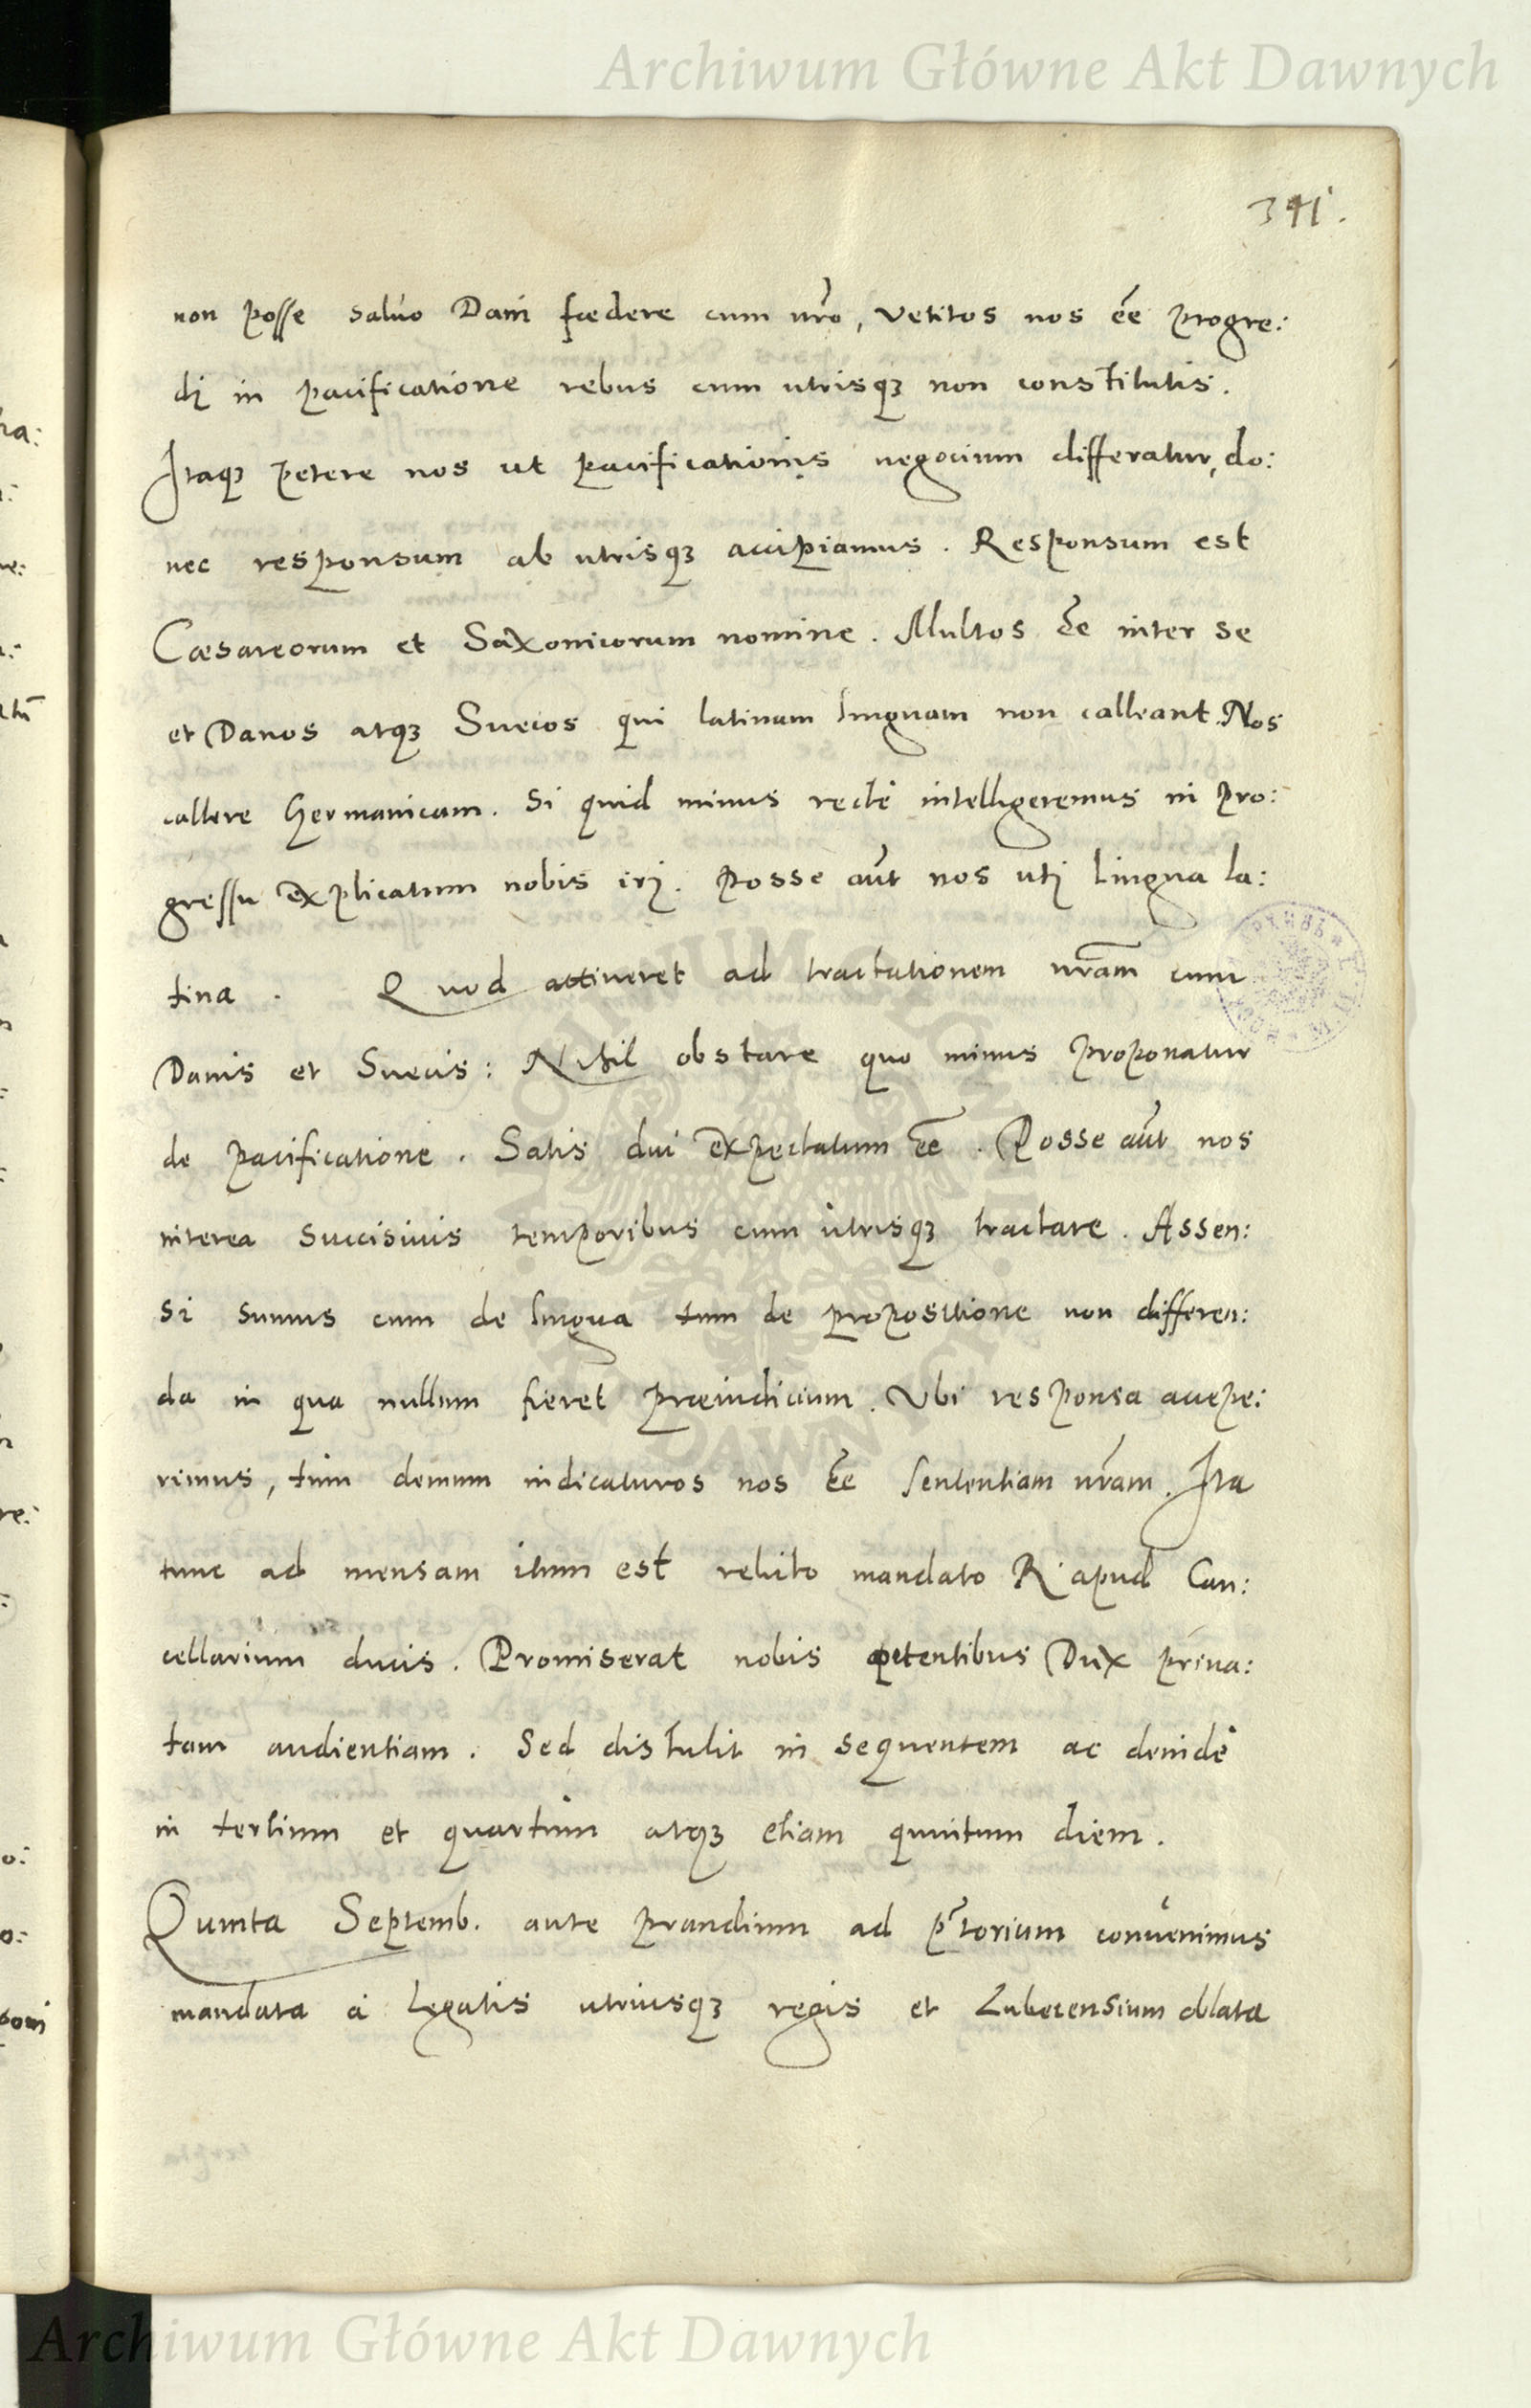 Archiwum Główne Akt Dawnych
391.
non posse saluo Dani fœdere cum nr̃o, vetitos nos eẽ progre:
di in pacificatione rebus cum utrisqꝫ non constitutis.
Itaqꝫ petere nos ut pacificationis negocium differatur, do:
nec responsum ab utrisqꝫ accipiamus. Responsum est
Cæsareorum et Saxonicorum nomine. Multos eẽ inter se
et Danos atqꝫ Suecos qui latinam linguam non calleant. Nos
callere Germanicam. Si quid minus recte intelligeremus in pro:
gressu explicatum nobis iri. Posse aũt nos uti Lingua la:
tina. Quod attineret ad tractationem nr̃am cum
Danis et Suecis: Nihil obstare quo minus proponatur
de pacificatione. Satis diu expectatum eẽ. Posse aũt nos
interea succisiuis temporibus cum utrisqꝫ tractare. Assen:
si sumus cum de lingua tum de propositione non differen:
da in qua nullum fieret præiudicium. Vbi responsa accepe:
rimus, tum demum indicaturos nos eẽ sententiam nr̃am. Ita
tunc ad mensam itum est relicto mandato R apud Can:
cellarium ducis. Promiserat nobis petentibus Dux priua:
tam audientiam. Sed distulit in sequentem ac deinde
in tertium et quartum atqꝫ etiam quintum diem.
Quinta Septemb. ante prandium ad p̃torium conuenimus
mandata a Legatis utriusqꝫ regis et Lubecensium oblata
Archiwum Główne Akt Dawnych